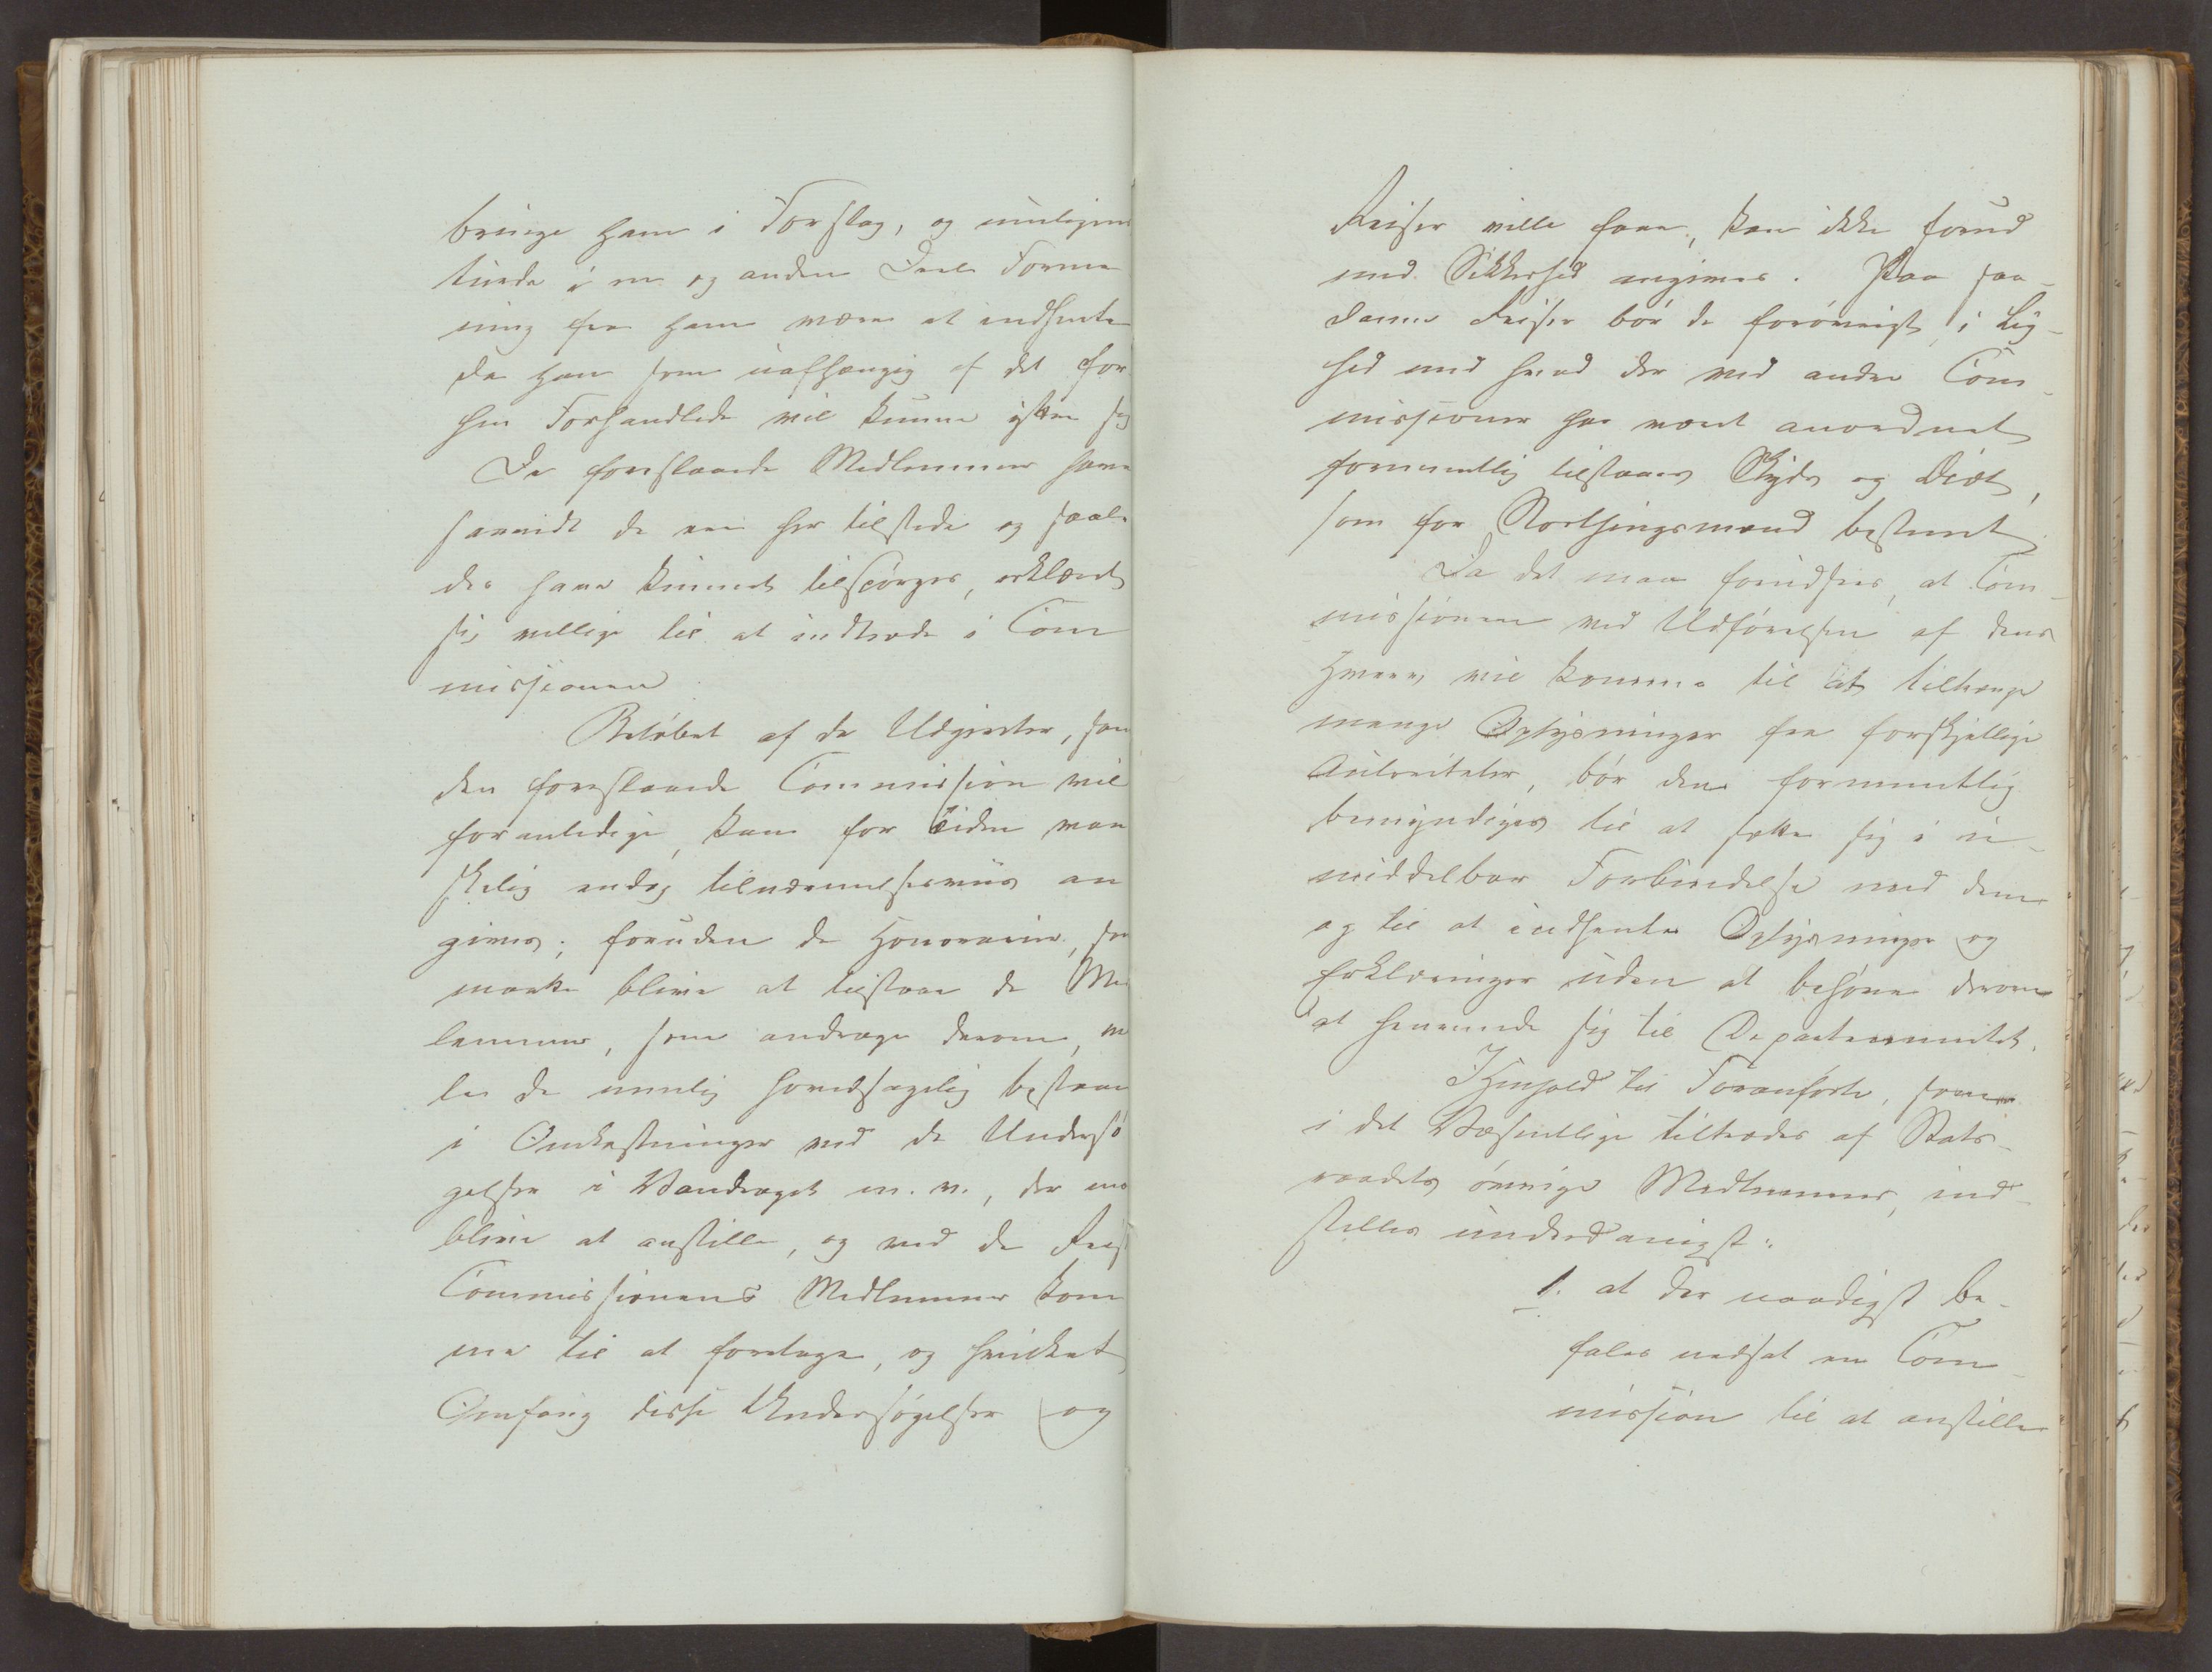 bringe ham i Forslag, og muligens
turde i en og anden Deel Forme
ning fra ham være at indhente
da han som uafhængig af det for
hen Forhandlede vil kunne yttre sig
De foreslaaede Medlemmer have
saavidt de ere her tilstede og saale
des have kunnet tilspørges, erklæret
sig villige til at indtræde i Com
missionen
Beløbet af de Udgivter, som
den foreslaaede Commission vil
foranledige, kan for Tiden van
skelig endog tilnærmelsesviis an
gives; foruden de Honorarier, som
maatte blive at tilstaae de Med
lemmer, som andrage derom, vil
le de nemlig hovedsagelig bestaae
i Omkostninger ved de Undersø
gelser i Vandraget m. v., der maa
blive at anstille, og ved de Reiser
Commissionens Medlemmer kom
me til at foretage, og hvilket
Omfang disse Undersøgelser og
Reiser ville faae, kan ikke forud
med Sikkerhed angives. Paa saa-
danne Reiser bør de forøvrigt, i Lig-
hed med hvad der ved andre Com-
missioner har været anordnet
formeentlig tilstaaes Skyds og Diæt,
som for Storthingsmænd bestemt
Da det maa forudsees, at Com-
missionen ved Udførelsen af dens
Hverv, vil komme til at tiltrænge
mange Oplysninger fra forskjellige
Autoriteter, bør den formeentlig
bemyndiges til at sætte sig i u-
middelbar Forbindelse med dem
og til at indhente Oplysninger og
Erklæringer uden at behøve derom
at henvende sig til Departementet.
I Henhold til Foranførte, som
i det Væsentlige tiltrædes af Stats-
raadets øvrige Medlemmer, ind-
stilles underdanigst:
1. at der naadigst be-
fales nedsat en Com-
mission til at anstille